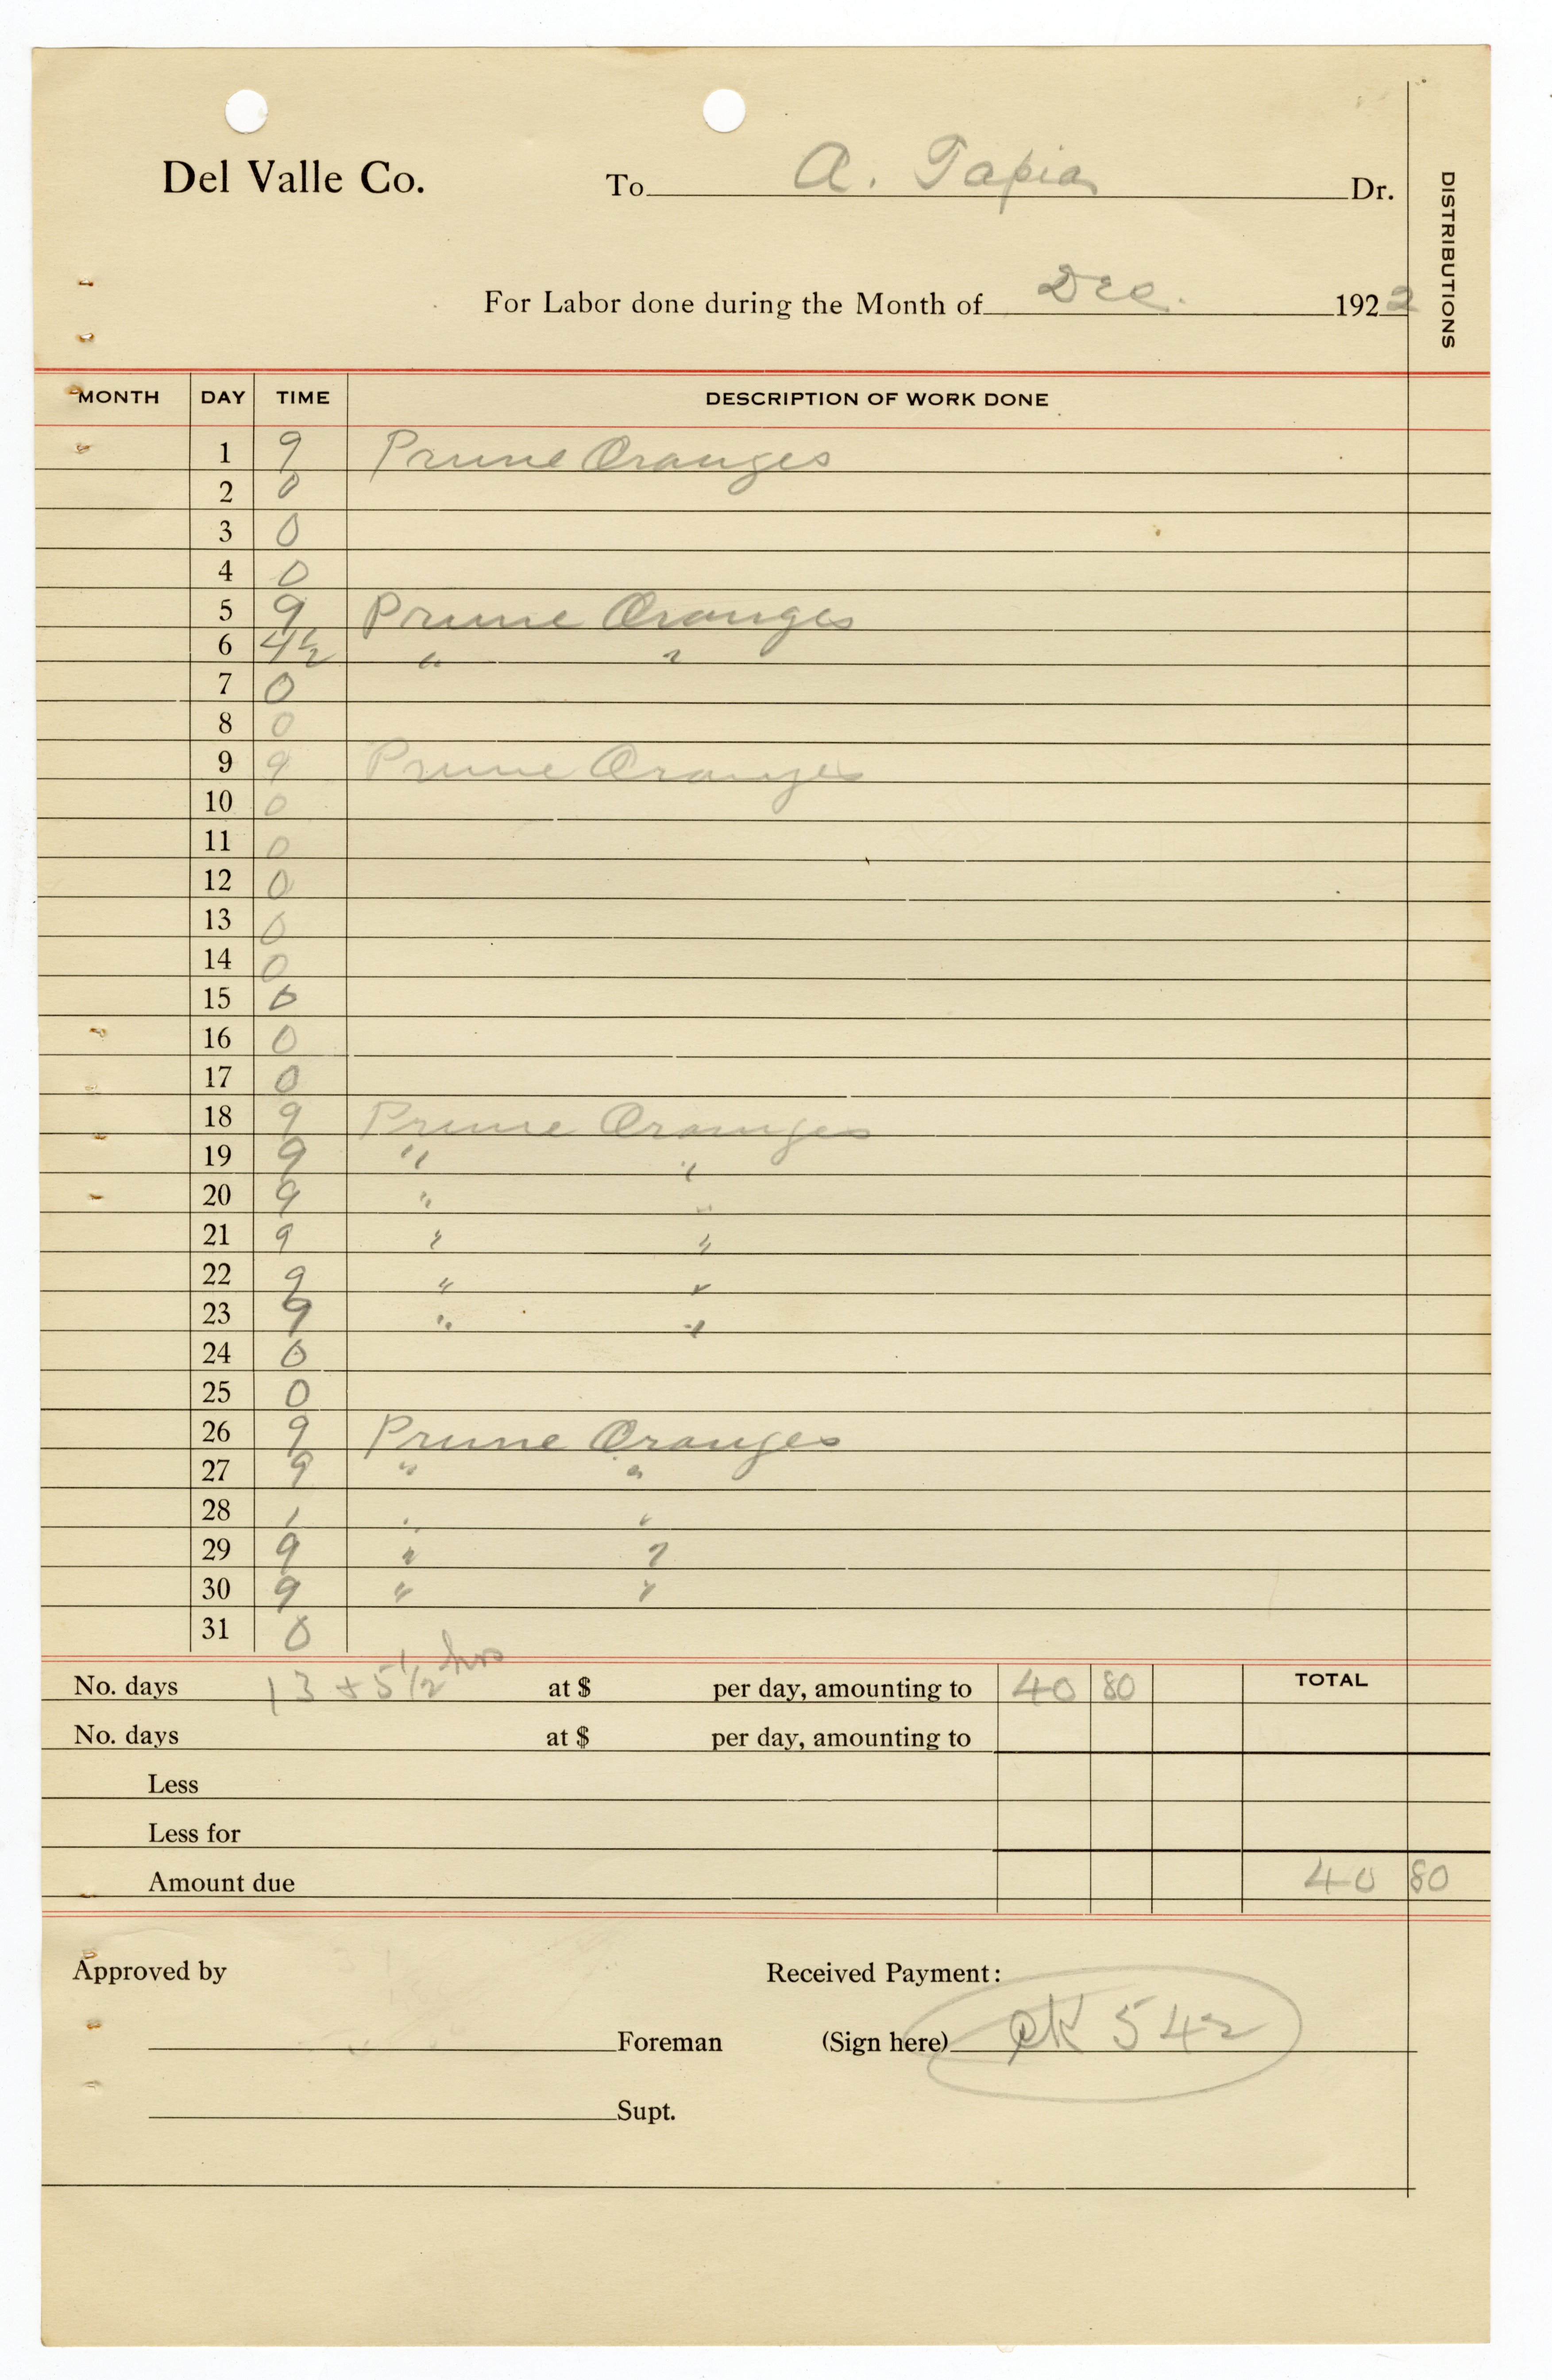 Del Valle Co. To A. Tapia Dr.
DISTRIBUTIONS
For Labor done during the Month of Dec. 1922
MONTH DAY TIME DESCRIPTION OF WORK DONE
1 9 Prune Oranges
2 0
3 0
4 0
5 9 Prune Oranges
6 4½ " "
7 0
8 0
9 9 Prune Oranges
10 0
11 0
12 0
13 0
14 0
15 0
16 0
17 0
18 9 Prune Oranges
19 9 " "
20 9 " "
21 9 " "
22 9 " "
23 9 " "
24 0
25 0
26 9 Prune Oranges
27 9 " "
28 1 " "
29 9 " "
30 9 " "
31 0
No. days 13 + 5 1/2 hrs at $ per day, amounting to 40 80 TOTAL
No. days at $ per day, amounting to
Less
Less for
Amount due 40 80
Approved by Received Payment:
Foreman (Sign here) CK 542
Supt.